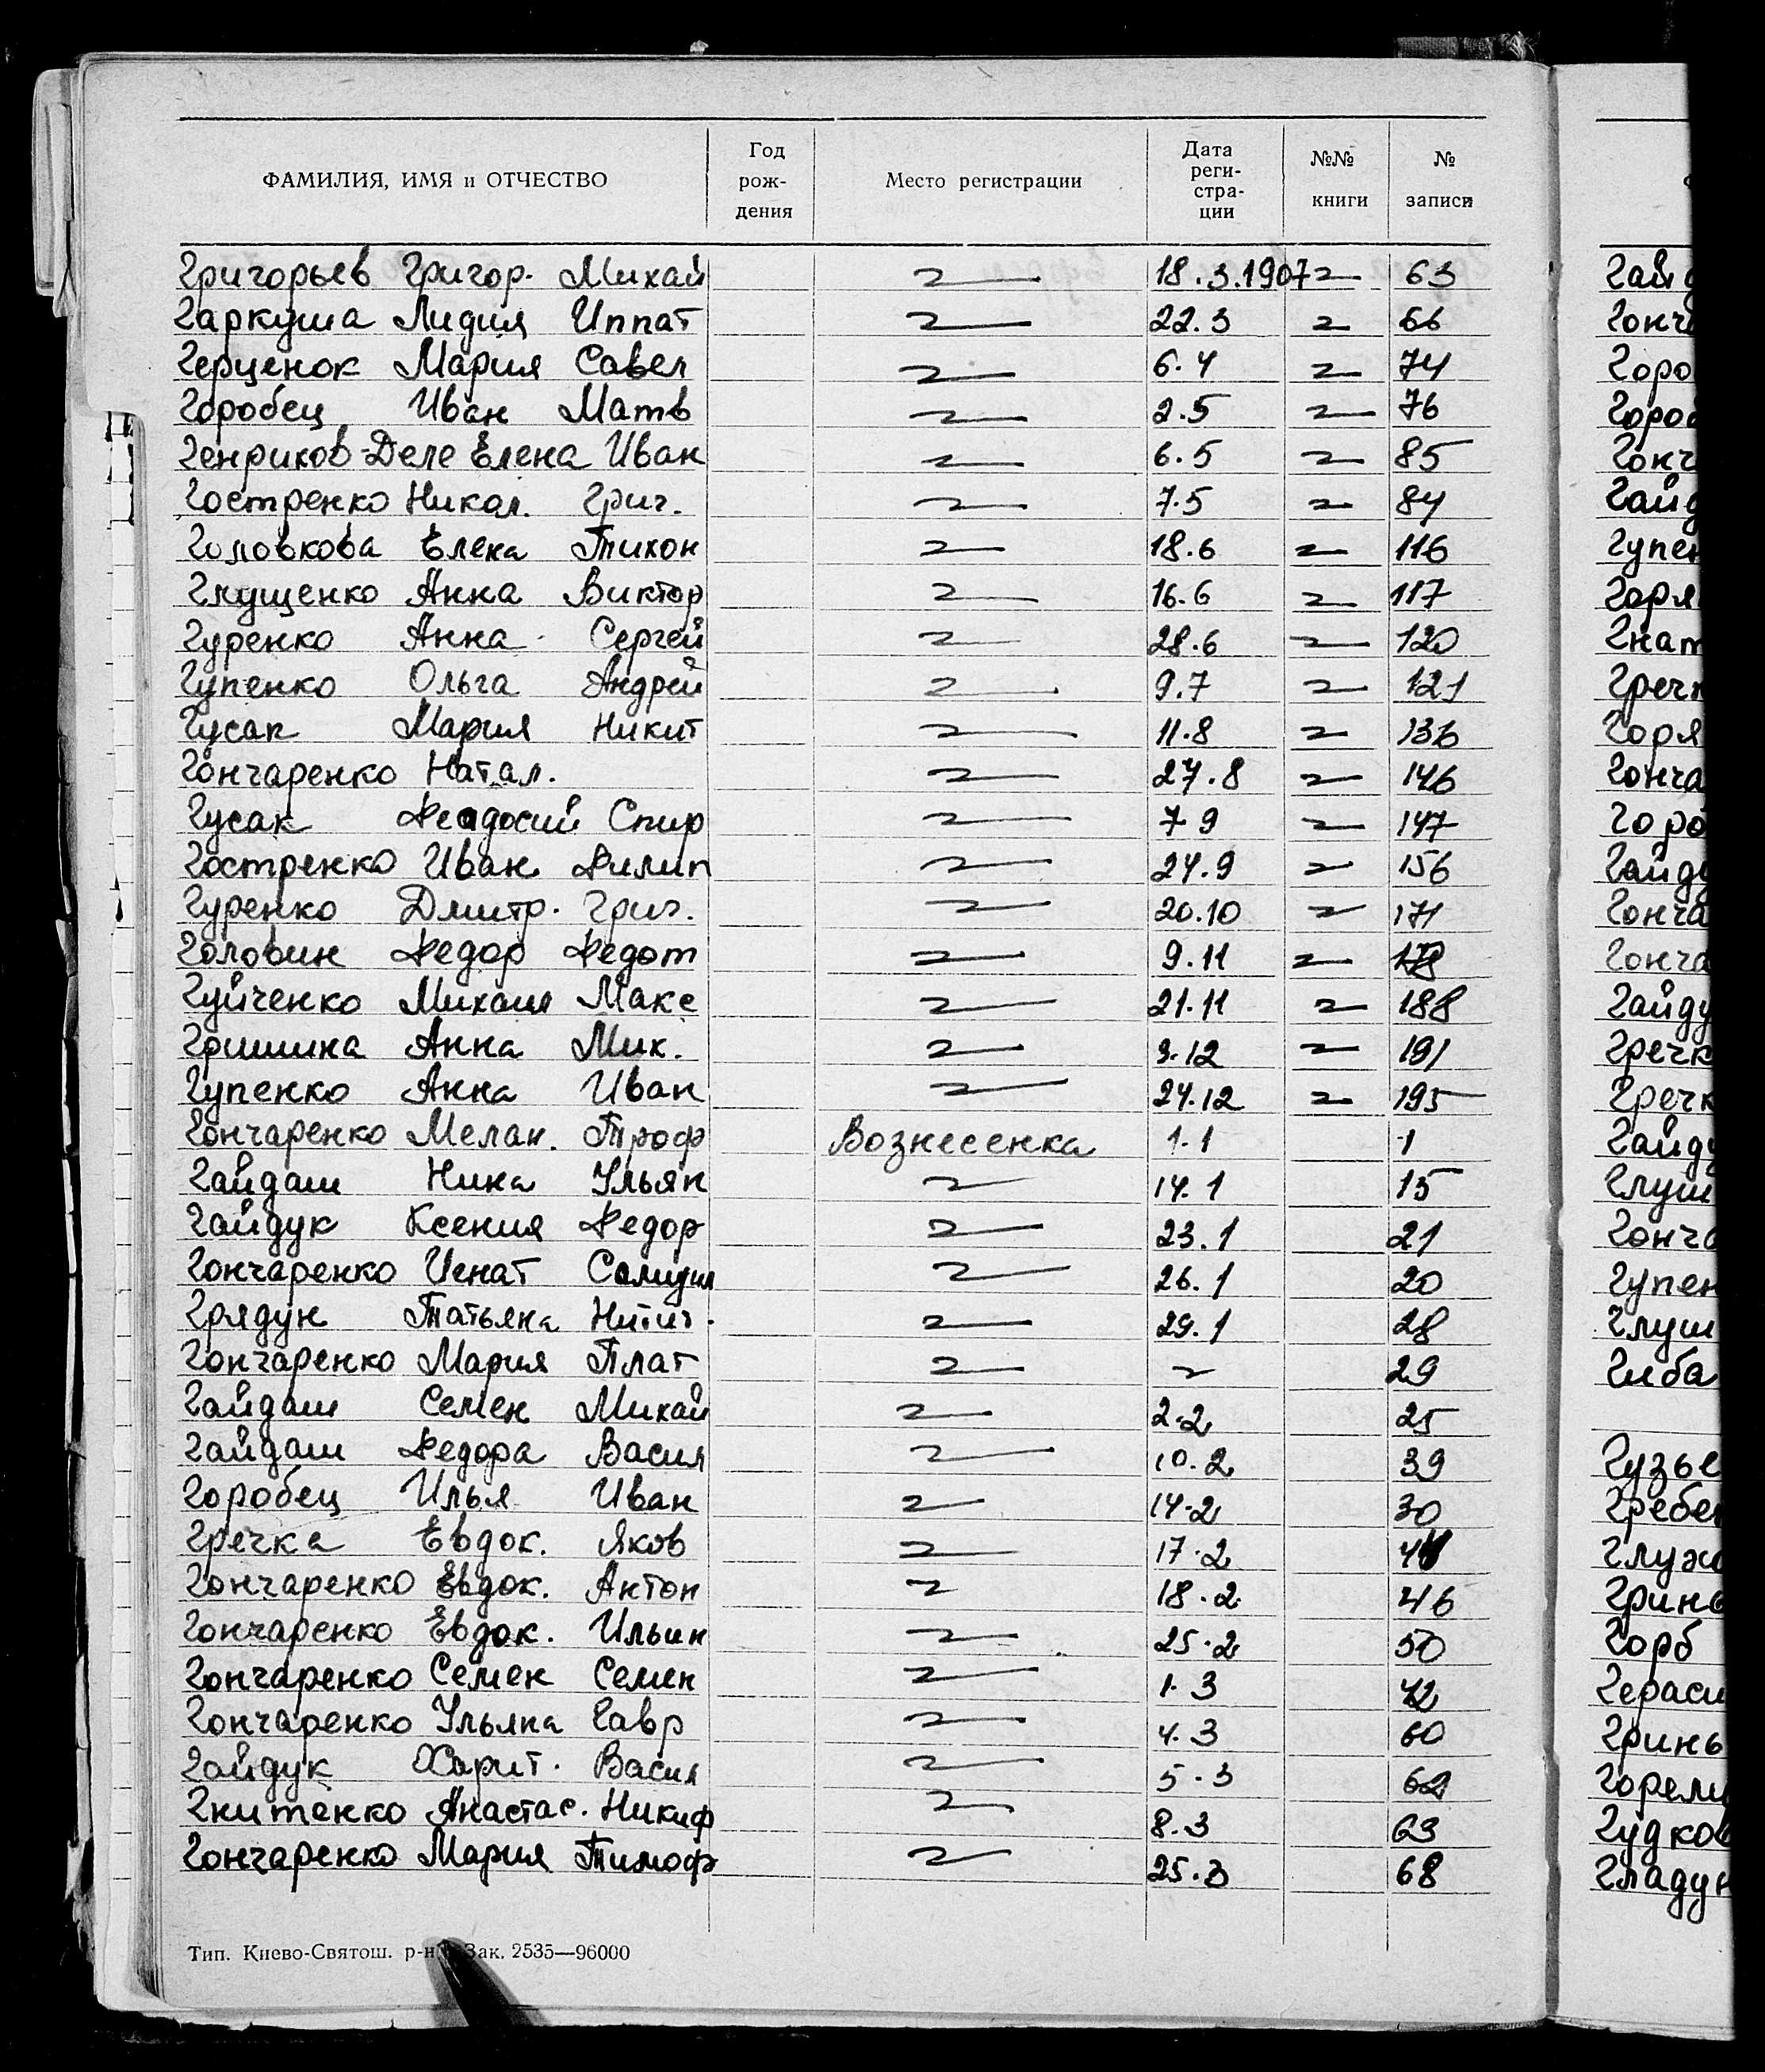 ФАМИЛИЯ, ИМЯ и ОТЧЕСТВО Год рож- дения Место регистрации Дата реги- стра- ции №№ книги № записи
Григорьев Григор. Михай 18.3.1907 63
Гаркуша Лидия Иппат 22.3 66
Герценок Мария Савел 6.4 74
Горобец Иван Матв 2.5 76
Генрихов-Деле Елена Иван 6.5 85
Гостренко Никол. Григ. 7.5 84
Головкова Елена Тихон 18.6 116
Глущенко Анна Виктор 16.6 117
Гуренко Анна Сергей 28.6 120
Гупенко Ольга Андрей 9.7 121
Гусак Мария Никит 11.8 136
Гончаренко Натал. 27.8 146
Гусак Феодосий Спир 7 9 147
Гостренко Иван Филип 24.9 156
Гуренко Дмитр. Григ. 20.10 171
Головин Федор Федот 9.11 178
Гуйченко Михаил Макс 21.11 188
Гришина Анна Мих. 3.12 191
Гупенко Анна Иван 24.12 195
Гончаренко Мелан. Троф Вознесенка 1.1 1
Гайдаш Нина Ульян 14.1 15
Гайдук Ксения Федор 23.1 21
Гончаренко Игнат 26.1 20
Грядун Татьяна 29.1 28
Гончаренко Мария Плат 29
Гайдаш Семен Михай 2.2 25
Гайдаш Федора Васил 10.2 39
Горобец Илья Иван 14.2 30
Гречка Евдок. Яков 17.2
Гончаренко Евдок. Антон 18.2 46
Гончаренко Евдок. Ильин 25.2 50
Гончаренко Семен Семен 1.3 42
Гончаренко Ульяна Гавр 4.3 60
Гайдук Харит. Васил 5.3 62
Гнитенко Анастас. Никиф 8.3 63
Гончаренко Мария Тимоф 25.3 68
Тип. Киево-Святош. р-н Зак. 2535—96000